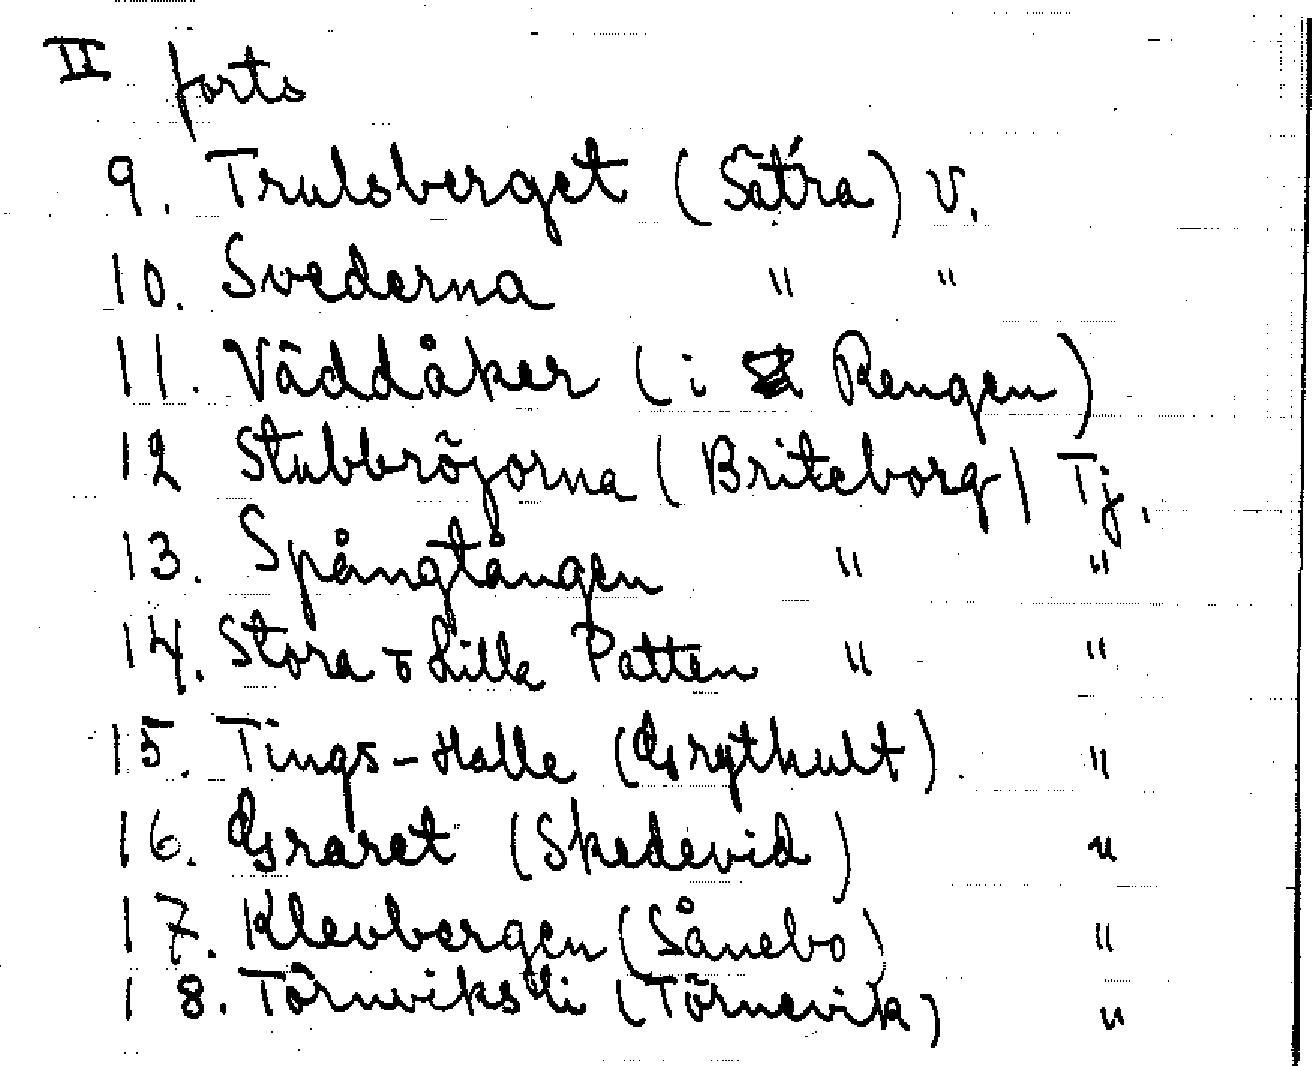 II forts
9. Trulsberget (Sätra) V.
10. Svederna " "
11. Väddåker (i Rengen)
12 Stubbröjorna (Briteborg) Tj.
13. Spångtången " "
14. Stora o Lilla Patten " "
15. Tings-Halle (Grythult) "
16. Graret (Skedevid) "
17. Klevbergen (Sånebo) "
18. Törnviks li (Törnevik) "